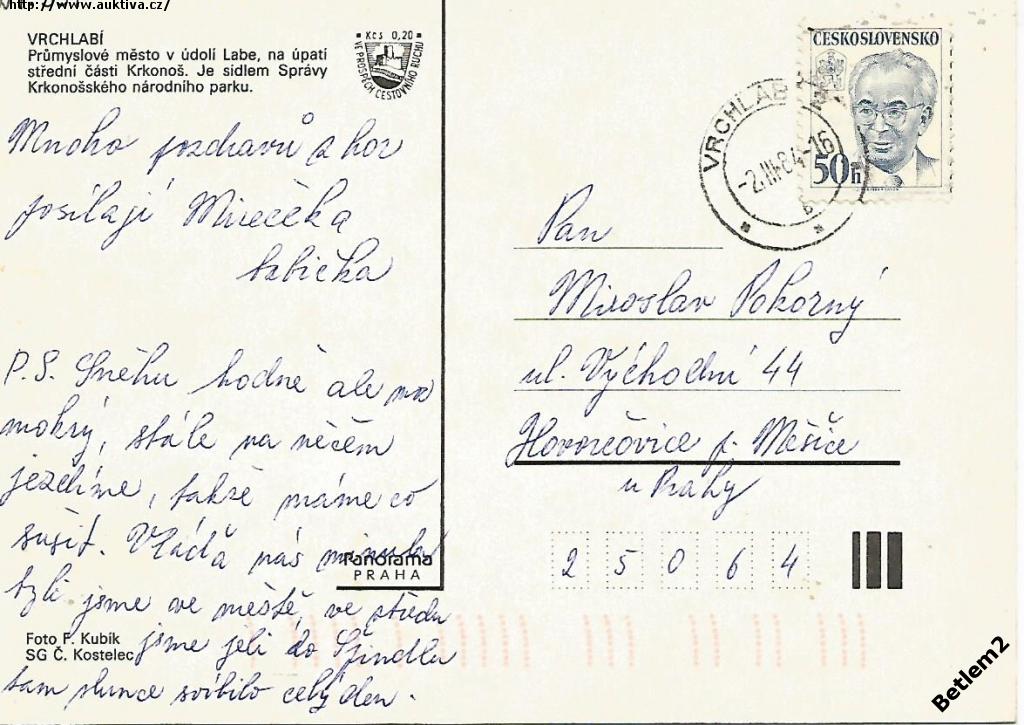 http://www.auktiva.cz/
VRCHLABÍ
Průmyslové město v údolí Labe, na úpatí
střední části Krkonoš. Je sídlem Správy
Krkonošského národního parku.
Kčs 0,20
VE PROSPĚCH CESTOVNÍHO RUCHU
Mnoho pozdravů z hor
posílají Mirečka
babička
P.S. Sněhu hodně ale moc
mokrý, stále na něčem
jezdíme, takže máme co
sušit. Vláďa nás minula
byli jsme ve městě, ve středu
jsme jeli do Špindlu
tam slunce svítilo celý den.
Panorama
PRAHA
Foto F. Kubík
SG Č. Kostelec
ČESKOSLOVENSKO
50h
VRCHLABÍ 1
-2.III.84-16
Pan
Miroslav Pokorný
ul. Východní 44
Hovorčovice p. Měšice
u Prahy
2 5 0 6 4
Betlem2